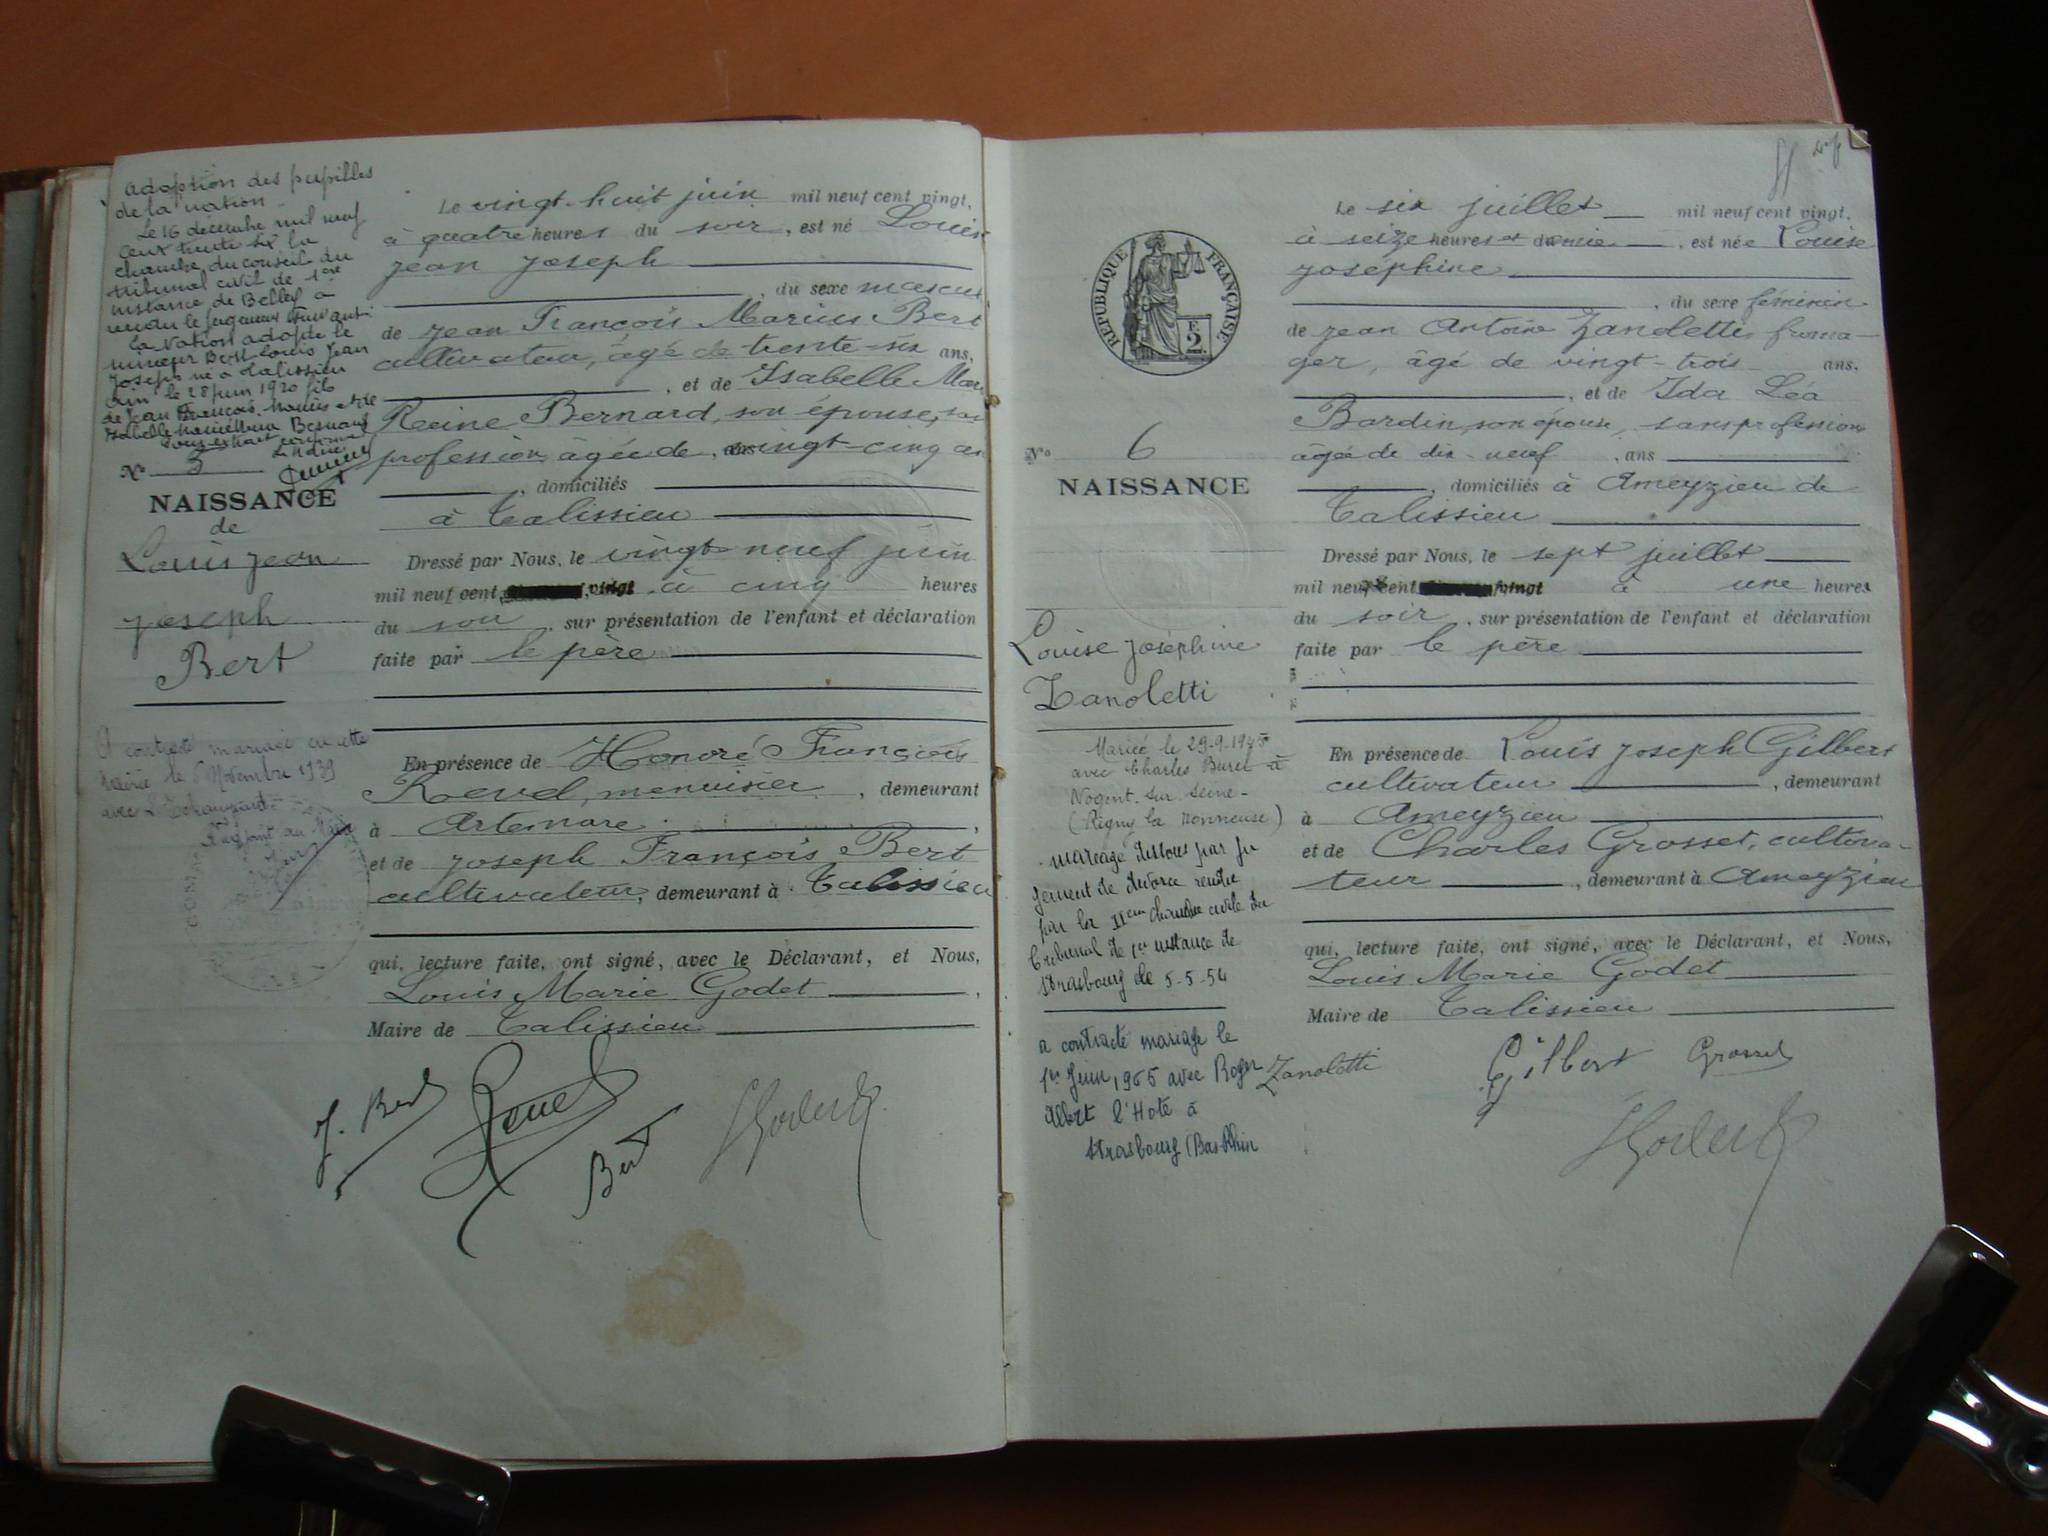 adoption des pupilles
de la nation
Le 16 décembre mil neuf
cent trente six la
chambre du conseil du
tribunal civil de 1ère
instance de Belley a
rendu le jugement suivant:
la Nation adopte le
mineur Bert Louis Jean
Joseph né à Talissieu
Ain le 28 juin 1920 fils
de Jean François Marius et de
Isabelle
Bernard
Pour extrait conforme
Le Maire
No
NAISSANCE
de
Louis Jean
Joseph
Bert
A contracté mariage en cette
mairie le 6 Novembre 1939
avec
Le vingt-huit juin mil neuf cent vingt,
à quatre heures du soir, est né Louis
Jean Joseph
, du sexe mascul
de Jean François Marius Bert
cultivateur, âgé de trente-six ans,
, et de Isabelle Mar
Reine Bernard, son épouse, san
profession âgée de vingt-cinq an
, domiciliés
à Talissieu
Dressé par Nous, le vingt neuf juin
mil neuf cent vingt à cinq heures
du soir, sur présentation de l'enfant et déclaration
faite par le père
En présence de Honoré François
menuisier, demeurant
à Artemare,
et de Joseph François Bert
cultivateur, demeurant à Talissieu
qui, lecture faite, ont signé, avec le Déclarant, et Nous,
Louis Marie Godet,
Maire de Talissieu
J. Bert
Bert
LGodet
RÉPUBLIQUE FRANÇAISE
F.
2
No 6
NAISSANCE
Louise Joséphine
Zanoletti
Mariée le 29-9-1945
avec Charles Buret à
Nogent-sur-Seine-
(Rigny la Nonneuse)
mariage dissous par ju
gement de divorce rendu
par la IIème chambre civile du
tribunal de 1ère instance de
Strasbourg de 5-5-54
a contracté mariage le
1er Juin 1965 avec Roger
Albert l'Hote à
Strasbourg (Bas-Rhin
Le six juillet mil neuf cent vingt,
à seize heures et demie, est née Louise
Joséphine
, du sexe féminin
de Jean Antoine Zanoletti, froma-
ger, âgé de vingt-trois ans,
, et de Ida Léa
Bardin, son épouse, sans profession
âgée de dix-neuf, ans
, domiciliés à Ameyzieu de
Talissieu
Dressé par Nous, le sept juillet
mil neuf cent vingt à une heures
du soir, sur présentation de l'enfant et déclaration
faite par le père
En présence de Louis Joseph Gilbert
cultivateur, demeurant
à Ameyzieu
et de Charles Grosset, cultiva-
teur, demeurant à Ameyzieu
qui, lecture faite, ont signé, avec le Déclarant, et Nous,
Louis Marie Godet
Maire de Talissieu
Zanoletti
Gilbert
Grosset
LGodet